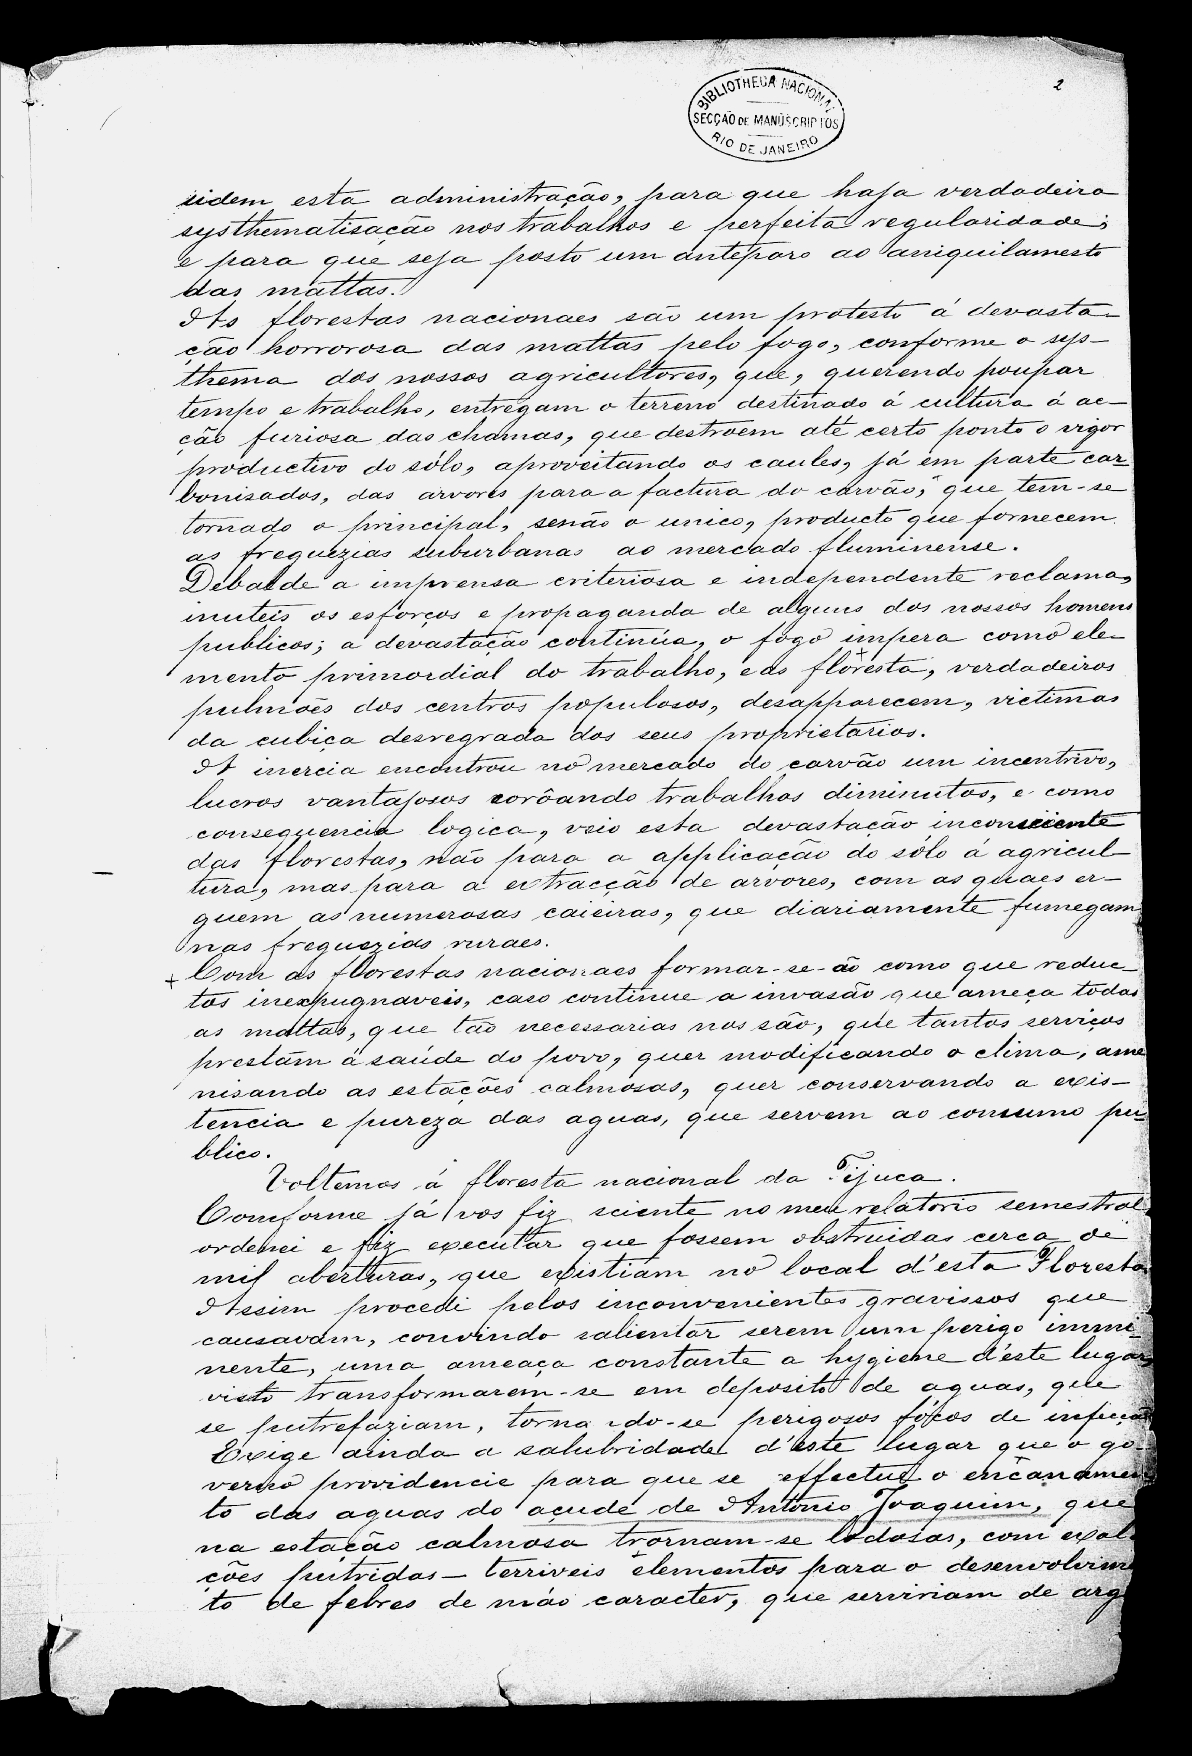 2
BIBLIOTHECA NACIONAL
SECÇÃO DE MANUSCRIPTOS
RIO DE JANEIRO
sidem esta administração, para que haja verdadeira
systhematisação nos trabalhos e perfeita regularidade;
e para que seja posto um anteparo ao aniquilamento
das mattas.
As florestas nacionaes são um protesto á devasta-
ção horrorosa das mattas pelo fogo, conforme o sys-
thema dos nossos agricultores, que, querendo poupar
tempo e trabalho, entregam o terreno destinado á cultura á ac-
ção furiosa das chamas, que destroem até certo ponto o vigor
productivo do sólo, aproveitando os caules, já em parte car
bonisados, das arvores para a factura do carvão, que tem-se
tornado o principal, senão o unico, producto que fornecem
as freguezias suburbanas ao mercado fluminense.
Debalde a imprensa criteriosa e independente reclama,
inuteis os esforços e propaganda de alguns dos nossos homens
publicos; a devastação continúa, o fogo impera como ele-
mento primordial do trabalho, e as floresta, verdadeiros
pulmões dos centros populosos, desapparecem, victimas
da cubiça desregrada dos seus proprietarios.
A inercia encontrou no mercado do carvão um incentrivo,
lucros vantajosos corôando trabalhos diminutos, e como
consequencia logica, veio esta devastação inconsciente
das florestas, não para a applicação do sólo á agricul-
tura, mas para a extracção de arvores, com as quaes er-
guem as numerosas caieiras, que diariamente fumegam
nas freguezias ruraes.
+ Com as florestas nacionaes formar-se-ão como que reduc-
tos inexpugnaveis, caso continue a invasão que ameça todas
as mattas, que tão necessarias nos são, que tantos serviços
prestam á saúde do povo, quer modificando o clima, ame
nisando as estações calmosas, quer conservando a exis-
tencia e pureza das aguas, que servem ao consumo pu-
blico.
Voltemos á floresta nacional da Tijuca.
Comforme já vos fiz sciente no meu relatorio semestral
ordenei e fiz executar que fossem obstruidas cerca de
mil aberturas, que existiam no local d'esta Floresta
Assim procedi pelos inconvenientes gravissos que
causavam, convindo salientar serem um perigo immi-
nente, uma ameaça constante a hygiene d'este lugar
visto transformarem-se em deposito de aguas, que
se putrefaziam, torna do-se perigosos fócos de infecçã
Exige ainda a salubridade d'este lugar que o go-
verno providencie para que se effectue o encanamen
to das aguas do açude de Antonio Joaquim, que
na estação calmosa trornam-se lodosas, com exal
ções putridas - terriveis elementos para o desenvolvim
to de febres de máo caracter, que serviriam de arg